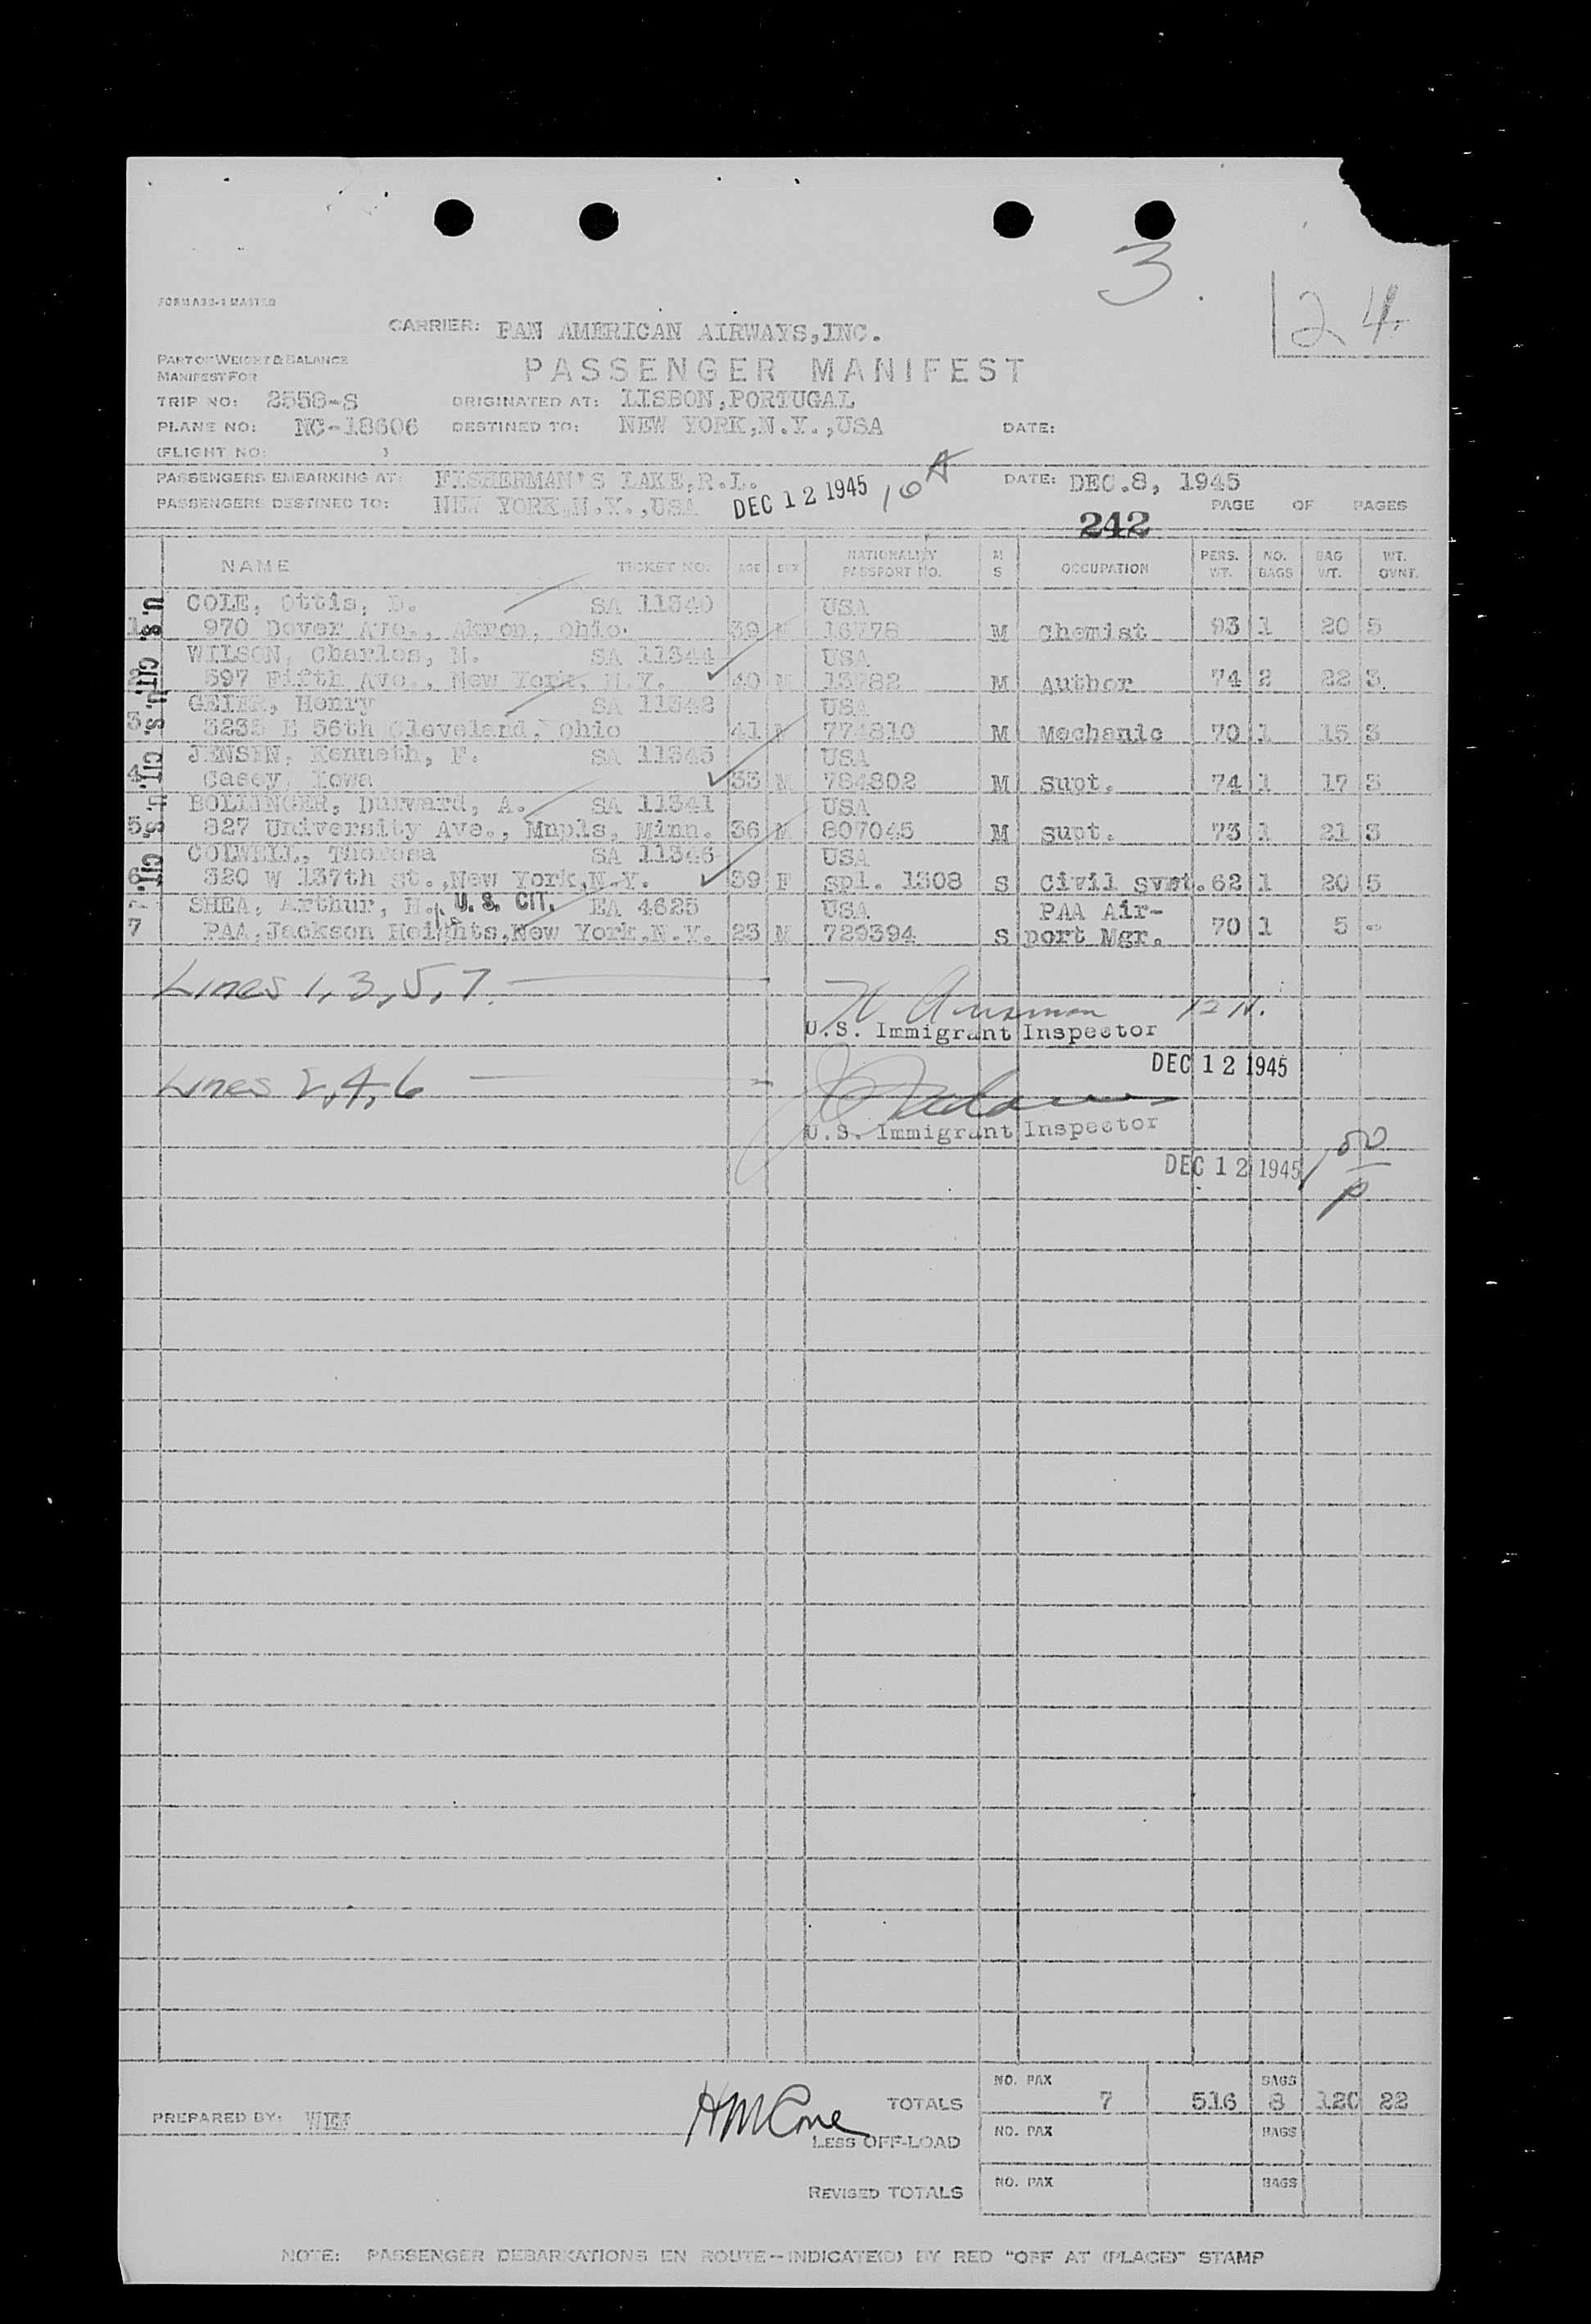 3.
24
FORM A30-1 MASTER
CARRIER: PAN AMERICAN AIRWAYS,INC.
PART OF WEIGHT & BALANCE
MANIFEST FOR
PASSENGER MANIFEST
TRIP NO: 2558-S ORIGINATED AT: LISBON,PORTUGAL
PLANE NO: NC-18606 DESTINED TO: NEW YORK,N.Y.,USA DATE:
(FLIGHT NO: )
PASSENGERS EMBARKING AT: FISHERMAN'S LAKE,R.L. DATE: DEC.8, 1945
PASSENGERS DESTINED TO: NEW YORK,N.Y.,USA DEC 12 1945 10 A PAGE OF PAGES
242
NAME TICKET NO. AGE SEX NATIONALITY PASSPORT NO. M S OCCUPATION PERS. WT. NO. BAGS BAG WT. WT. OVNT.
COLE, Ottis, D. SA 11340 USA
1 970 Dover Ave., Akron, Ohio. 39 M 16778 M Chemist 93 1 20 5
WILSON, Charles, N. SA 11344 USA
2 597 Fifth Ave., New York, N.Y. 40 M 13782 M Author 74 2 22 3
GEIER, Henry SA 11342 USA
3 3235 E 56th Cleveland, Ohio 41 M 774810 M Mechanic 70 1 15 3
JENSEN, Kenneth, F. SA 11345 USA
4 Casey, Iowa 33 M 784802 M Supt. 74 1 17 3
BOLLINGER, Durward, A. SA 11341 USA
5 827 University Ave., Mnpls, Minn. 36 M 807045 M Supt. 73 1 21 3
COLWELL, Theresa SA 11346 USA
6 320 W 137th St.,New York,N.Y. 39 F spl. 1308 S Civil svnt. 62 1 20 5
SHEA, Arthur, H. U. S. CIT. EA 4625 USA PAA Air-
7 PAA,Jackson Heights,New York,N.Y. 23 M 729394 S port Mgr. 70 1 5 -
U. S. CIT.
U. S. CIT.
U. S. CIT.
Lines 1, 3, 5, 7.
12 N.
U.S. Immigrant Inspector
DEC 12 1945
Lines 2, 4, 6
U.S. Immigrant Inspector
DEC 12 1945 1 50 p
NO. PAX BAGS
TOTALS 7 516 8 120 22
PREPARED BY:
LESS OFF-LOAD NO. PAX BAGS
REVISED TOTALS NO. PAX BAGS
NOTE: PASSENGER DEBARKATIONS EN ROUTE--INDICATE(D) BY RED "OFF AT (PLACE)" STAMP